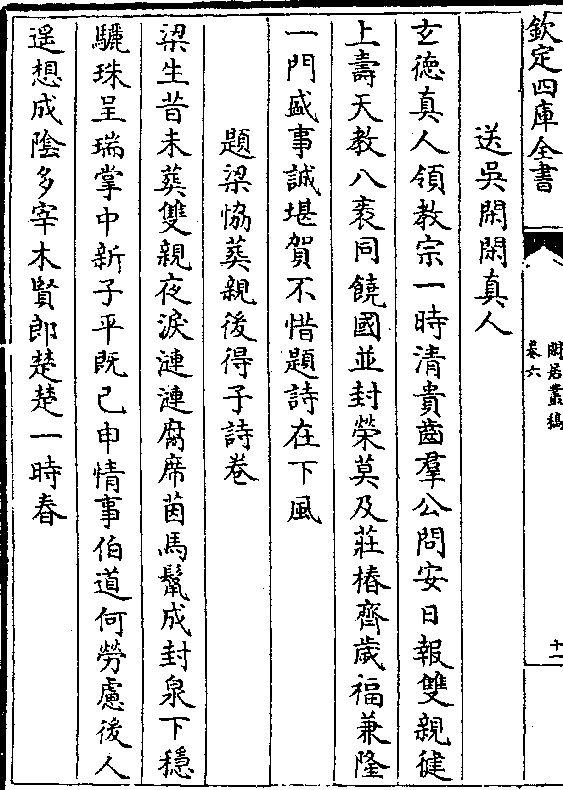 欽定四庫全書
閒居叢稿
卷六
十一
送吳閑閑真人
玄徳真人領教宗一時清貴齒羣公問安日報雙親健
上壽天教八袠同饒國並封榮莫及莊椿齊歲福兼隆
一門盛事誠堪賀不惜題詩在下風
題梁恊葬親後得子詩卷
梁生昔未葬雙親夜淚漣漣腐席茵馬鬛成封泉下穩
驪珠呈瑞掌中新子平既已申情事伯道何勞慮後人
遥想成陰多宰木賢郎楚楚一時春